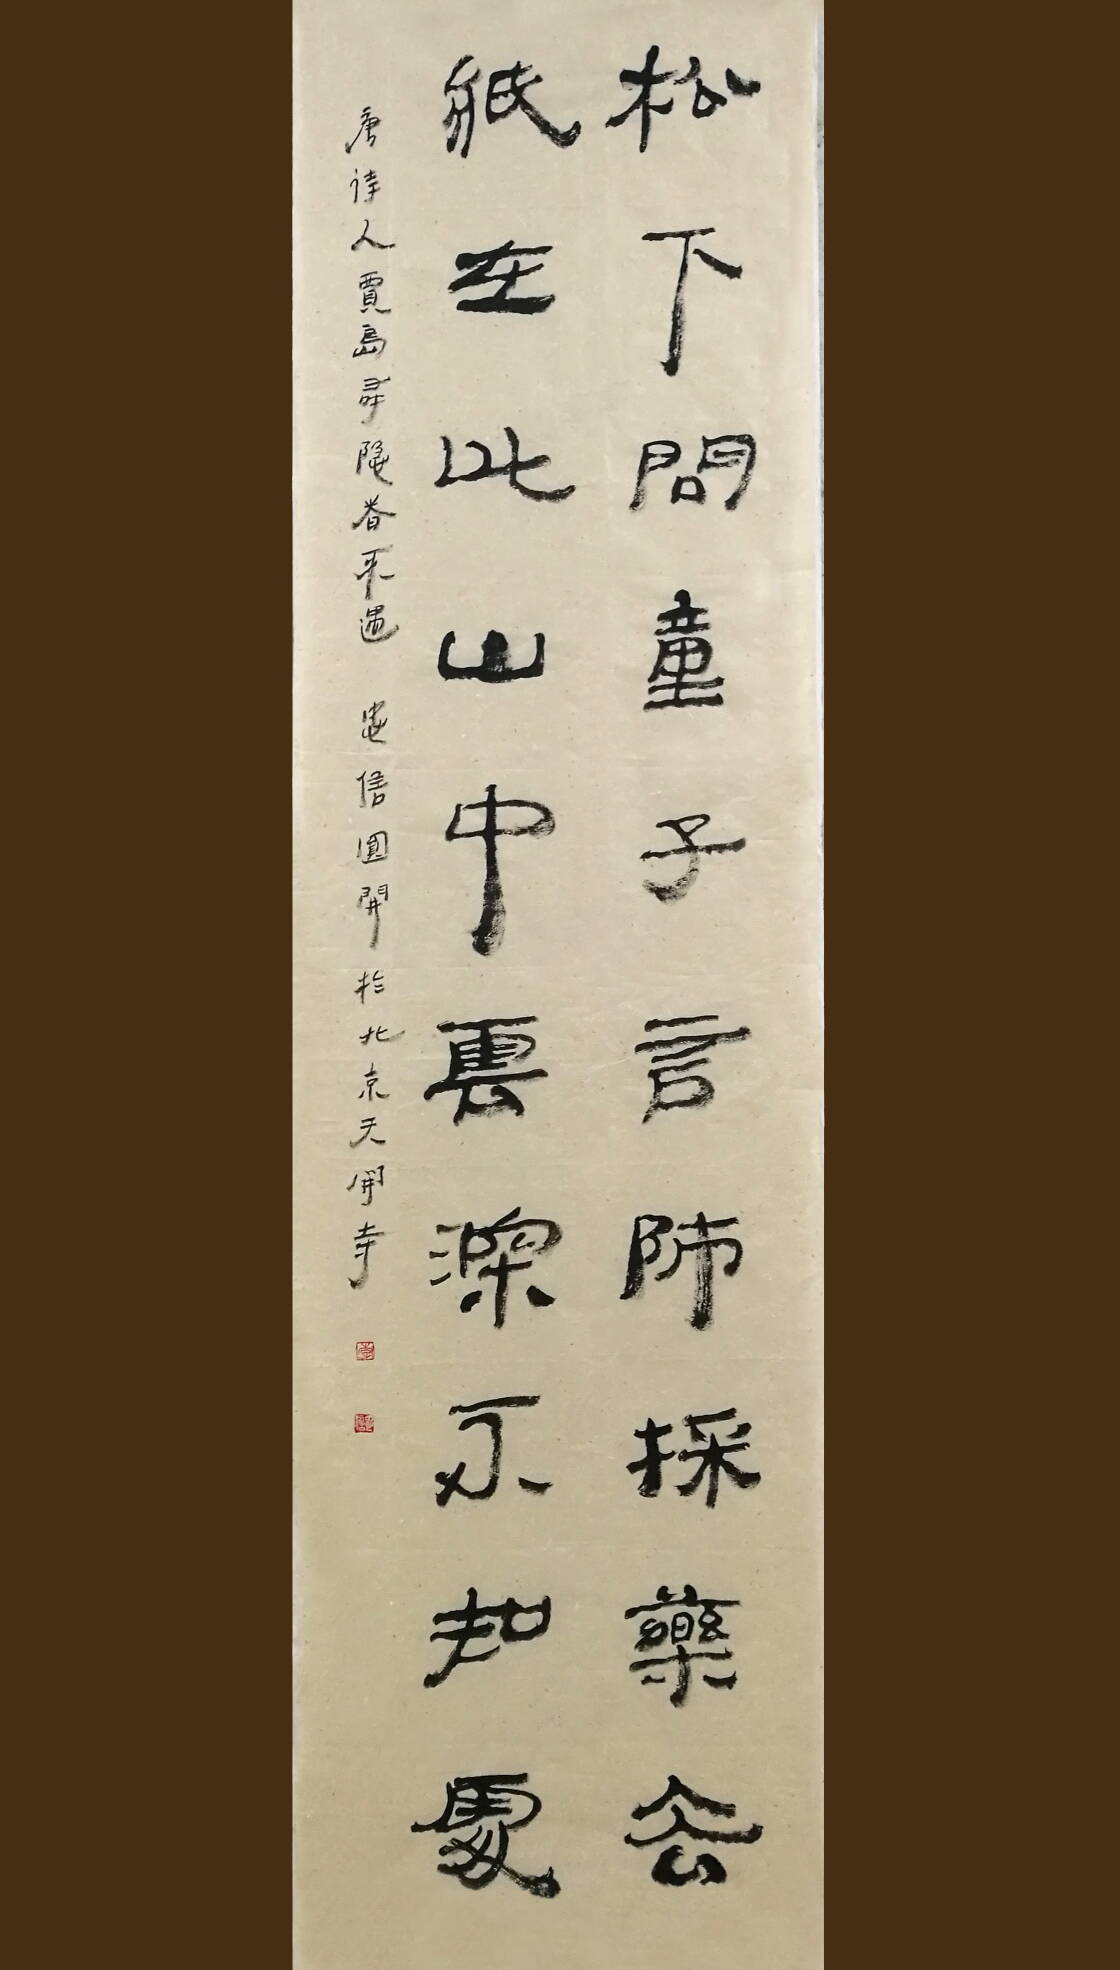 松下問童子言師採藥去
秖在此山中雲深不知處
唐詩人賈島尋隱者不遇 信圓開於北京天開寺